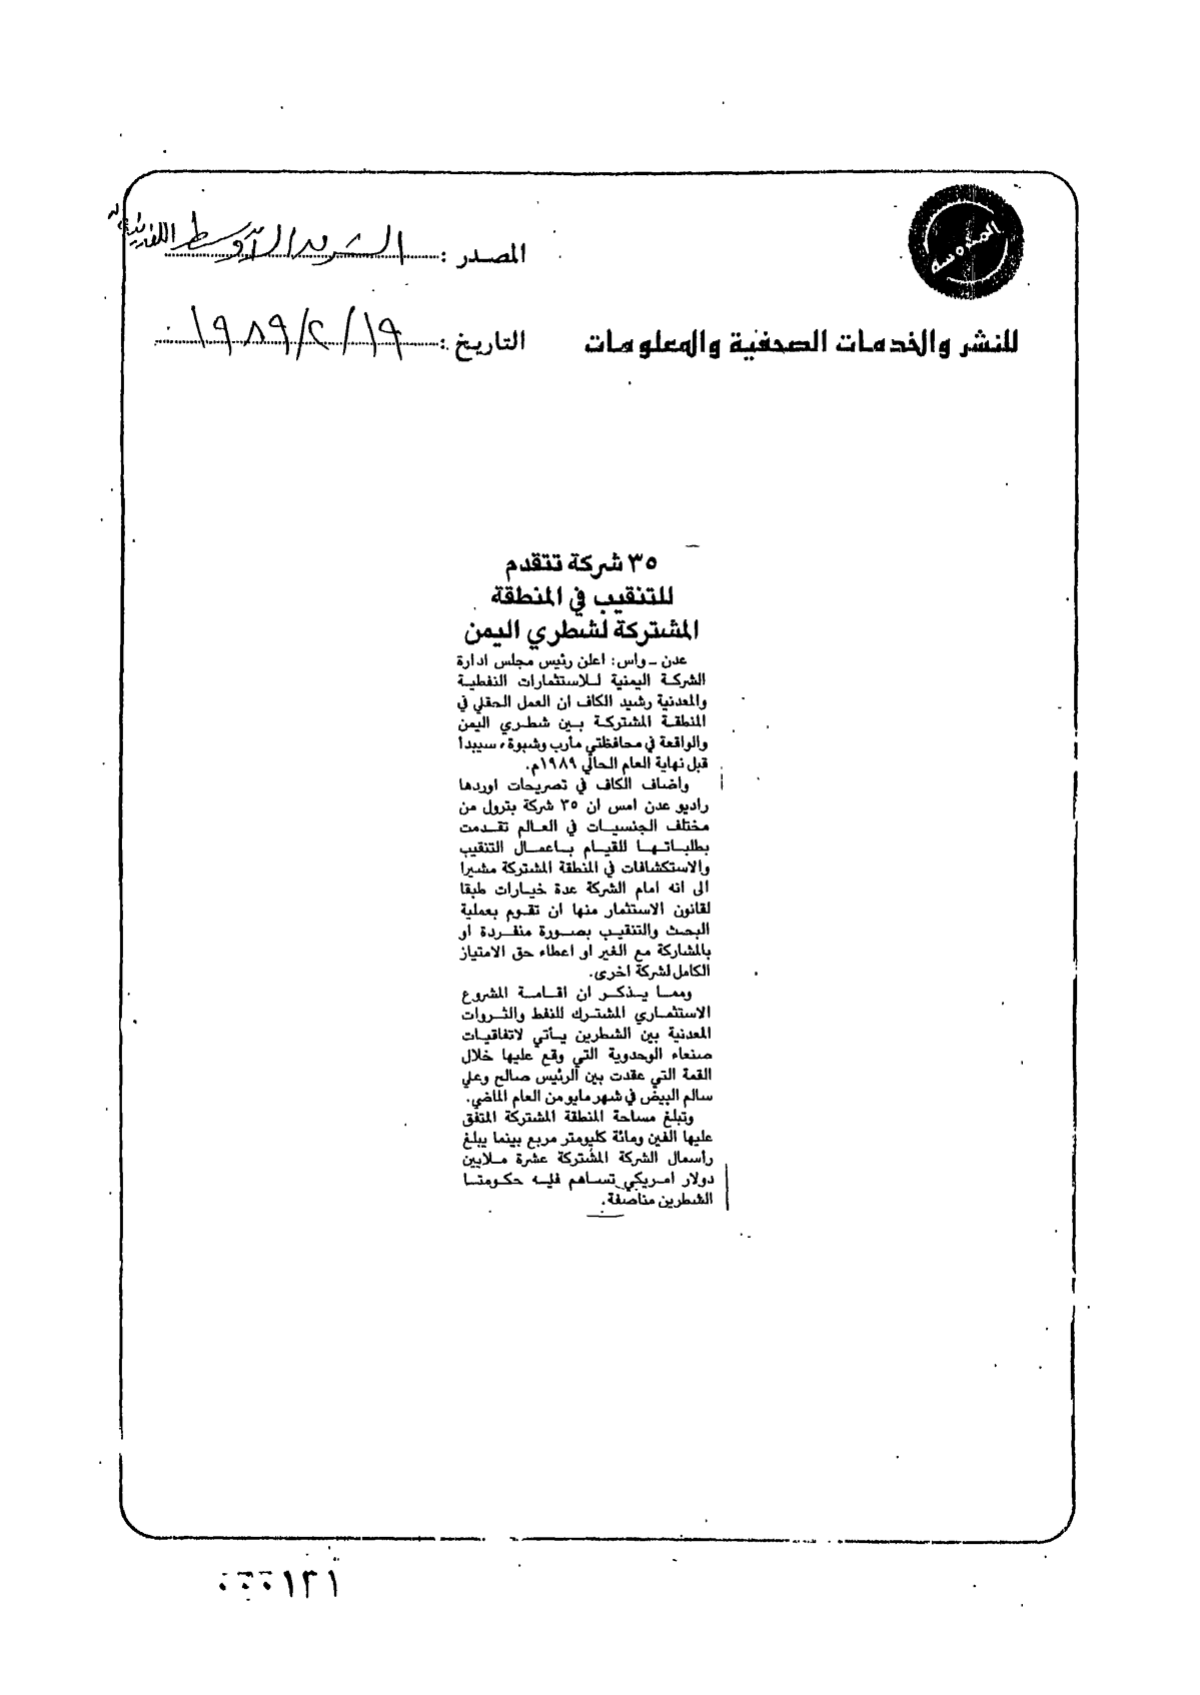 المحروسة
المصدر : الشرق الأوسط اللندنية
للنشر والخدمات الصحفية والمعلومات
التاريخ : ١٩/٢/١٩٨٩
٣٥ شركة تتقدم
للتنقيب في المنطقة
المشتركة لشطري اليمن
عدن ـ واس: اعلن رئيس مجلس ادارة
الشركة اليمنية للاستثمارات النفطية
والمعدنية رشيد الكاف ان العمل الحقلي في
المنطقة المشتركة بين شطري اليمن
والواقعة في محافظتي مأرب وشبوة، سيبدأ
قبل نهاية العام الحالي ١٩٨٩م.
واضاف الكاف في تصريحات اوردها
راديو عدن امس ان ٣٥ شركة بترول من
مختلف الجنسيات في العالم تقدمت
بطلباتها للقيام باعمال التنقيب
والاستكشافات في المنطقة المشتركة مشيرا
الى انه امام الشركة عدة خيارات طبقا
لقانون الاستثمار منها ان تقوم بعملية
البحث والتنقيب بصورة منفردة او
بالمشاركة مع الغير او اعطاء حق الامتياز
الكامل لشركة اخرى.
ومما يذكر ان اقامة المشروع
الاستثماري المشترك للنفط والثروات
المعدنية بين الشطرين يأتي لاتفاقيات
صنعاء الوحدوية التي وقع عليها خلال
القمة التي عقدت بين الرئيس صالح وعلي
سالم البيض في شهر مايو من العام الماضي.
وتبلغ مساحة المنطقة المشتركة المتفق
عليها الفين ومائة كليومتر مربع بينما يبلغ
رأسمال الشركة المشتركة عشرة ملايين
دولار امريكي تساهم فيه حكومتا
الشطرين مناصفة.